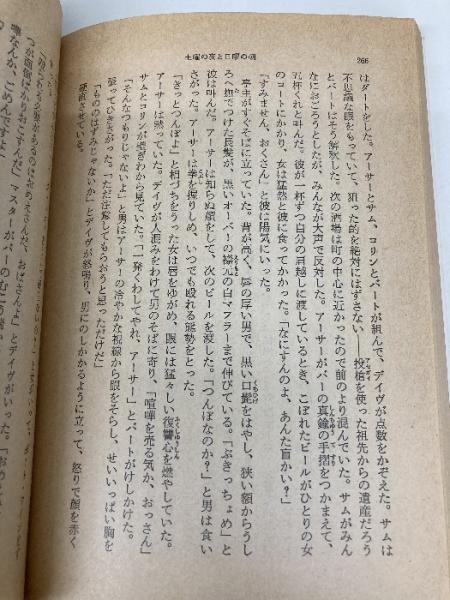 266
土曜の夜と日曜の朝
はダートをした。アーサーとサム、コリンとバートが組んで、デイヴが点数をかぞえた。サムは
不思議な眼をもっていて、狙った的を絶対にはずさない――投槍を使った祖先からの遺産だろう
とバートはそう解釈した。次の酒場は町の中心に近かったので前のより混んでいた。サムがみん
なにおごろうとしたが、みんなが大声で反対した。アーサーがバーの真鍮の手摺をつかまえて、
五杯くれと叫んだ。彼が一杯ずつ自分の肩越しに渡しているとき、こぼれたビールがひとりの女
のコートにかかり、女は猛然と彼に食ってかかった。「なにすんのよ、あんた盲かい?」
「すみません、おくさん」と彼は陽気にいった。
亭主がすぐそばに立っていた。背が高く、唇の厚い男で、黒い口髭をはやし、狭い額からうし
ろへ撫でつけた長髪が、黒いオーバーの襟元の白マフラーまで伸びている。「ぶきっちょめ」と
彼は叫んだ。アーサーは知らぬ顔をして、次のビールを渡した。「つんぼなのか?」と男は食い
さがった。アーサーは拳を握りしめ、いつでも殴れる態勢をとった。
「きっとつんぼよ」と相づちをうった女は唇をゆがめ、眼には猛々しい復讐心を燃やしていた。
アーサーは黙っていた。デイヴが人混みをわけて男のそばに寄り、「喧嘩を売る気か、おっさん」
サムとコリンが遠ぎわから見ていた。「一発くわしてやれ、アーサー」とバートがけしかけた。
「そんなつもりじゃないよ」と男はアーサーの冷やかな視線から眼をそらし、せいいっぱい胸を
張ってひきさがった。「ただ注意してもらおうと思っただけだ」
「もののはずみじゃないか」とデイヴが怒鳴り、男にのしかかるように立って、怒りで顔を赤く
硬直させている。